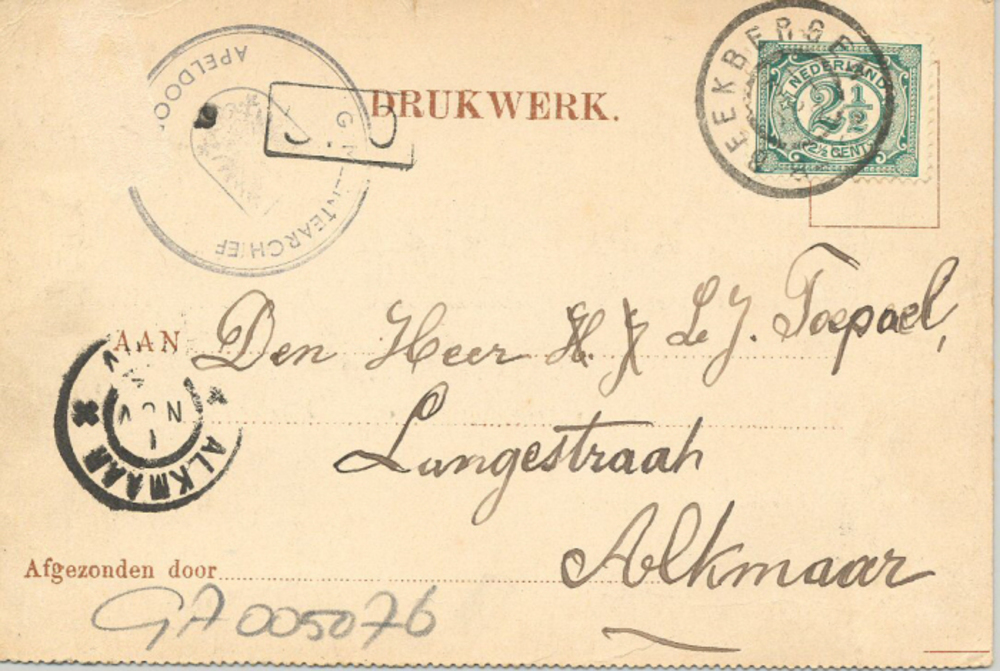 GEMEENTEARCHIEF
APELDOO
DRUKWERK.
BEEKBERGE
NEDERLAND
2 1/2
2½ CENT
AAN Den Heer H. J. L. J. Toepoel,
Langestraat
Alkmaar
ALKMAAR
1
NOV
Afgezonden door
GA005076